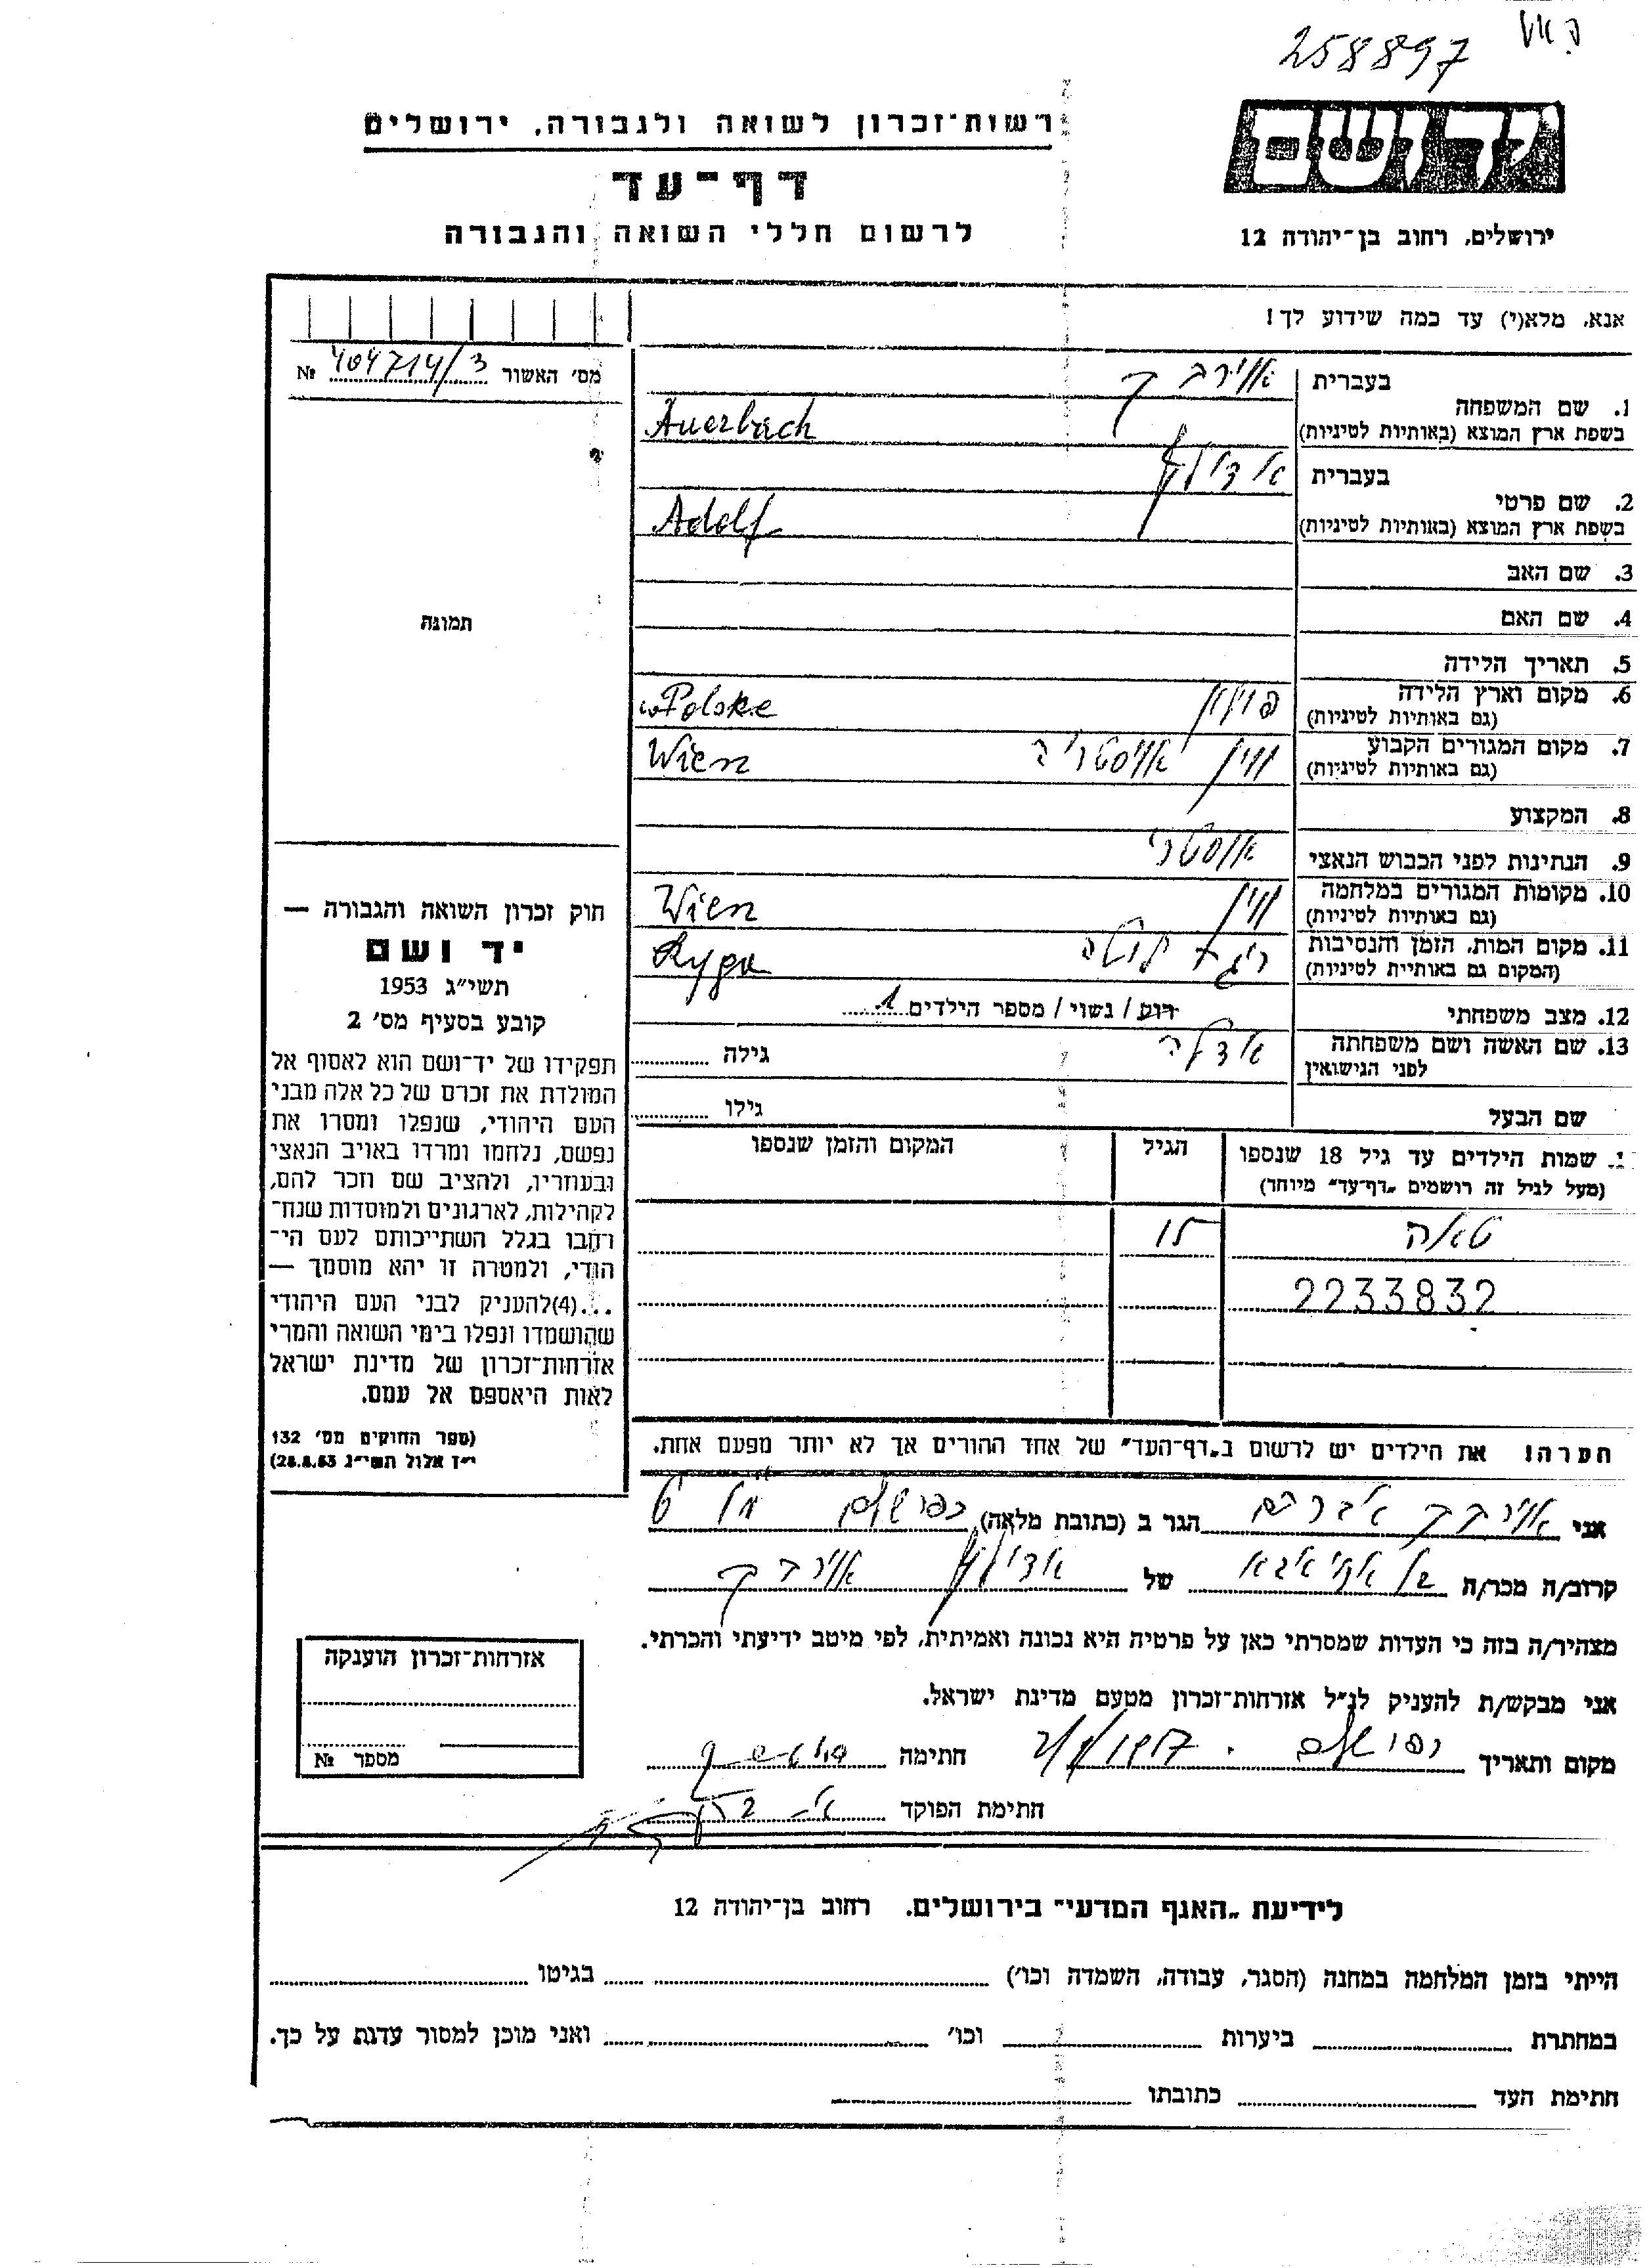 258897
יד ושם
רשות־זכרון לשואה ולגבורה, ירושלים
דף־עד
לרשום חללי השואה והגבורה
ירושלים, רחוב בן־יהודה 12
אנא, מלא(י) עד כמה שידוע לך!
מס׳ האשור 404714/3 №
תמונה
1. שם המשפחה
בעברית אוירבך
בשפת ארץ המוצא (באותיות לטיניות) Auerbach
2. שם פרטי
בעברית אדולף
בשפת ארץ המוצא (באותיות לטיניות) Adolf
3. שם האב
4. שם האם
5. תאריך הלידה
6. מקום וארץ הלידה
(גם באותיות לטיניות) פולין Polske
7. מקום המגורים הקבוע
(גם באותיות לטיניות) ווין אוסטריה Wien
8. המקצוע
9. הנתינות לפני הכבוש הנאצי אוסטרי
10. מקומות המגורים במלחמה
(גם באותיות לטיניות) ווין Wien
11. מקום המות, הזמן והנסיבות
(המקום גם באותיית לטיניות) ריגה Ryga
12. מצב משפחתי רוק / נשוי / מספר הילדים 1
13. שם האשה ושם משפחתה
לפני הנישואין אדלה גילה
שם הבעל גילו
שמות הילדים עד גיל 18 שנספו
(מעל לגיל זה רושמים „דף־עד״ מיוחד)
הגיל
המקום והזמן שנספו
15
2233832
הערה! את הילדים יש לרשום ב„דף־העד״ של אחד ההורים אך לא יותר מפעם אחת.
חוק זכרון השואה והגבורה —
יד ושם
תשי״ג 1953
קובע בסעיף מס׳ 2
תפקידו של יד־ושם הוא לאסוף אל
המולדת את זכרם של כל אלה מבני
העם היהודי, שנפלו ומסרו את
נפשם, נלחמו ומרדו באויב הנאצי
ובעוזריו, ולהציב שם וזכר להם,
לקהילות, לארגונים ולמוסדות שנח־
רבו בגלל השתייכותם לעם הי־
הודי, ולמטרה זו יהא מוסמך —
...(4)להעניק לבני העם היהודי
שהושמדו ונפלו בימי השואה והמרי
אזרחות־זכרון של מדינת ישראל
לאות היאספם אל עמם.
(ספר החוקים מס׳ 132
י״ז אלול תשי״ג 28.8.53)
אני אוירבך אברהם הגר ב (כתובת מלאה) ירושלים
קרוב/ה מכר/ה של אדולף אוירבך
מצהיר/ה בזה כי העדות שמסרתי כאן על פרטיה היא נכונה ואמיתית, לפי מיטב ידיעתי והכרתי.
אני מבקש/ת להעניק לנ״ל אזרחות־זכרון מטעם מדינת ישראל.
מקום ותאריך ירושלים חתימה
חתימת הפוקד
אזרחות־זכרון הוענקה
מספר №
לידיעת „האגף המדעי״ בירושלים. רחוב בן־יהודה 12
הייתי בזמן המלחמה במחנה (הסגר, עבודה, השמדה וכו׳) בגיטו
במחתרת ביערות וכו׳ ואני מוכן למסור עדות על כך.
חתימת העד כתובתו